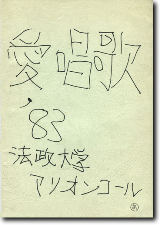 愛唱歌
'83
法政大学
アリオンコール